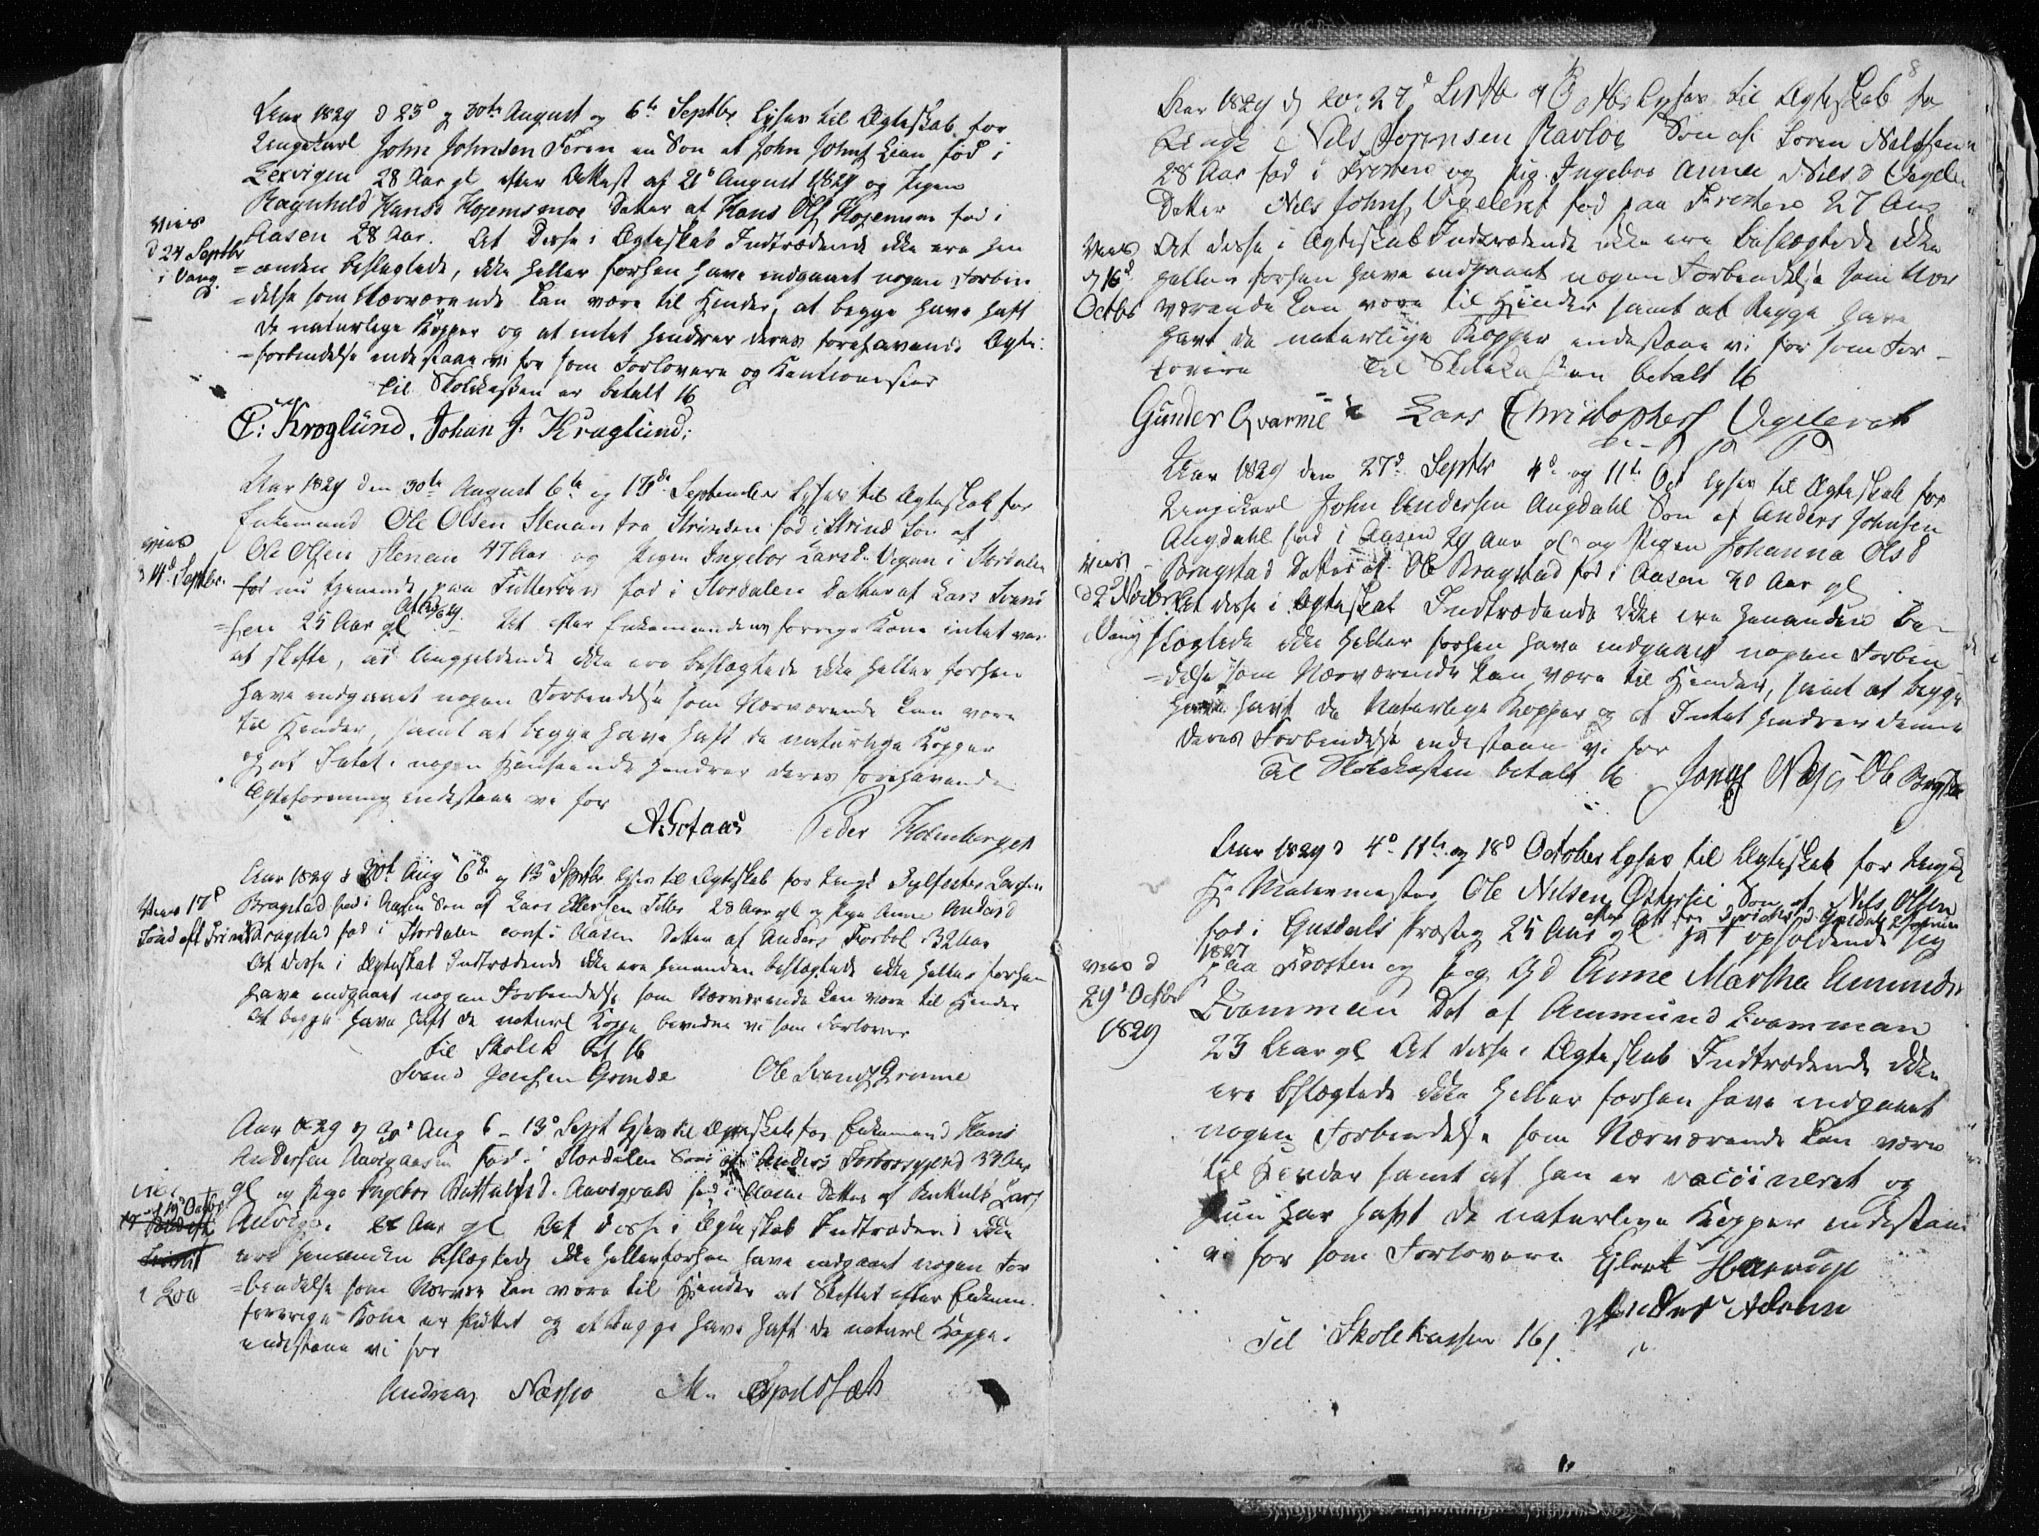 Aar 1829 d 23d og 30te August og 6te Septbr lyses til Ægteskab for
Ungekarl John Johnsen Feren en Søn af John Johns Lian fød i
Lexvigen 28 Aar gl efter Attest af 21d August 1829 og Pigen
Ragnhild Hansd Hojemsmoe Datter af Hans Ols Hojemsm fød i
Aasen 28 Aar. At disse i Ægteskab Indtrædende ikke ere hin
=anden beslægtede, ikke heller forhen have indgaaet nogen Forbin
=delse som Nærværende kan være til Hinder, at begge have haft
de naturlige Kopper og at intet hindrer deres forehavende Ægte:
=forbindelse indestaae vi for som Forlovere og Kautionister
Til Skolekassen er betalt 16
vies
d 24 Septbr
i Vang
C: Kroglund. Johan J. Kroglund:
Aar 1829 den 30te August 6te og 13de September lyses til Ægteskab for
Enkemand Ole Olsen Stenan fra Strinden fød i Strind Søn af
Ole Olsen Stenan 47 Aar og Pigen Ingebor Larsd Vigan i Stordalen
fød nu tjenende paa fød i Stordalen Datter af Lars
=sen 25 Aar gl At efter Enkemandens forrige Kone intet var
at skifte, at angjeldende ikke ere beslægtede ikke heller forhen
have indgaaet nogen Forbindelse som Nærværende kan være
til Hinder, samt at begge have haft de naturlige Kopper
og at Intet i nogen Henseende hindrer deres forehavende
Ægteforening indestaae vi for
vies
d 14d Septbr.
Peder Holmberget
Aar 1829 d 30te Aug 6te og 13d Septbr lyses til Ægteskab for Ungk Sylfester Larsen
Bragstad fød i Aasen Søn af Lars Ellertsen 28 Aar gl og Pige Anne Andersd
Kragstad fød i Stordalen conf i Aasen Datter af Anders Forbol 32 Aar
At disse i Ægteskab Indtrædende ikke ere hinanden beslægtede ikke heller forhen
have indgaaet nogen Forbindelse som Nærværende kan være til Hinder
at begge have haft de naturl Koppe bevidne vi som Forlover
til Skolek bet 16
Vies 17d
Sønd eft Trinit
Svend Jensen Grinde Ole Svends Grinde
Aar 1829 d 30d Aug 6 - 13d Sept lyses til Ægteskab for Enkemand Hans
Andersen fød i Stordalen Søn af Anders 37 Aar
gl og Pige Ingebor fød i Aasen Datter af Lars
Aar gl At disse i Ægteskab Indtrædend ikke
ere hinanden beslægtede ikke heller forhen have indgaaet nogen For
=bindelse som Nærvær kan være til Hinder at Skiftet efter Enkem.
forrige Kone er sluttet og at begge have haft de naturl Koppe.
indestaae vi for
vies
d 19 Octbr
i Loa
Andreas Næsvo M.
8
Aar 1829 d 20 27d Septb og 4 Octbr lyses til Ægteskab for
Ungk Nils Sørensen Ravloe Søn af Søren Nilsen
28 Aar fød i Frosten og Pig. Ingebor Anna Nilsd Vigeler
Datter Nils Johns Vigeleret fød paa Frosten 27 Aar
At disse i Ægteskab Indtrædende ikke ere beslægtede ikke
heller forhen have indgaaet nogen Forbindelse som Nær
værende kan være til Hinder samt at Begge have
havt de naturlige Kopper indestaae vi for som For-
lovere Til Skolekassen betalt 16
Vies
d 16d
Octbr
Gunder Qvarme Lars Christophers Vigelerat
Aar 1829 den 27d Septbr 4d og 11te Oct lyses til Ægteskab for
Ungekarl John Andersen Augdahl Søn af Anders Johnsen
Augdahl fød i Aasen 29 Aar gl og Pigen Johanna Olsd
Bragstad Datter af Ole Bragstad fød i Aasen 30 Aar gl
At disse i Ægteskab Indtrædende ikke ere hinanden be-
slægtede ikke heller forhen have indgaaet nogen Forbin
=delse som Nærværende kan være til Hinder, samt at begge
have havt de Naturlige Kopper og at Intet hindrer denne
deres Forbindelse indestaae vi for
Til Skolekassen betalt 16
vies
d 2 Novbr
i Vang
Ole
Aar 1829 d 4d 11te og 18d October lyses til Ægteskab for Ungk
Hr Malermester Ole Nilsen Østerlie Søn af Nils Olsen
fød i Gusdals Præsteg 25 Aar gl opholdende sig
1827
paa Frosten og Pige Anne Martha Amunds
Evamman Dat af Ammund Evamman
23 Aar gl At disse i Ægteskab Indtrædende ikke
ere beslægtede ikke heller forhen have indgaaet
nogen Forbindelse som Nærværende kan være
til Hinder samt at han er vaccineret og
hun har haft de naturlige Kopper indestaae
vi for som Forlovere
vies d
29d Octbr
1829
Til Skolekassen 16